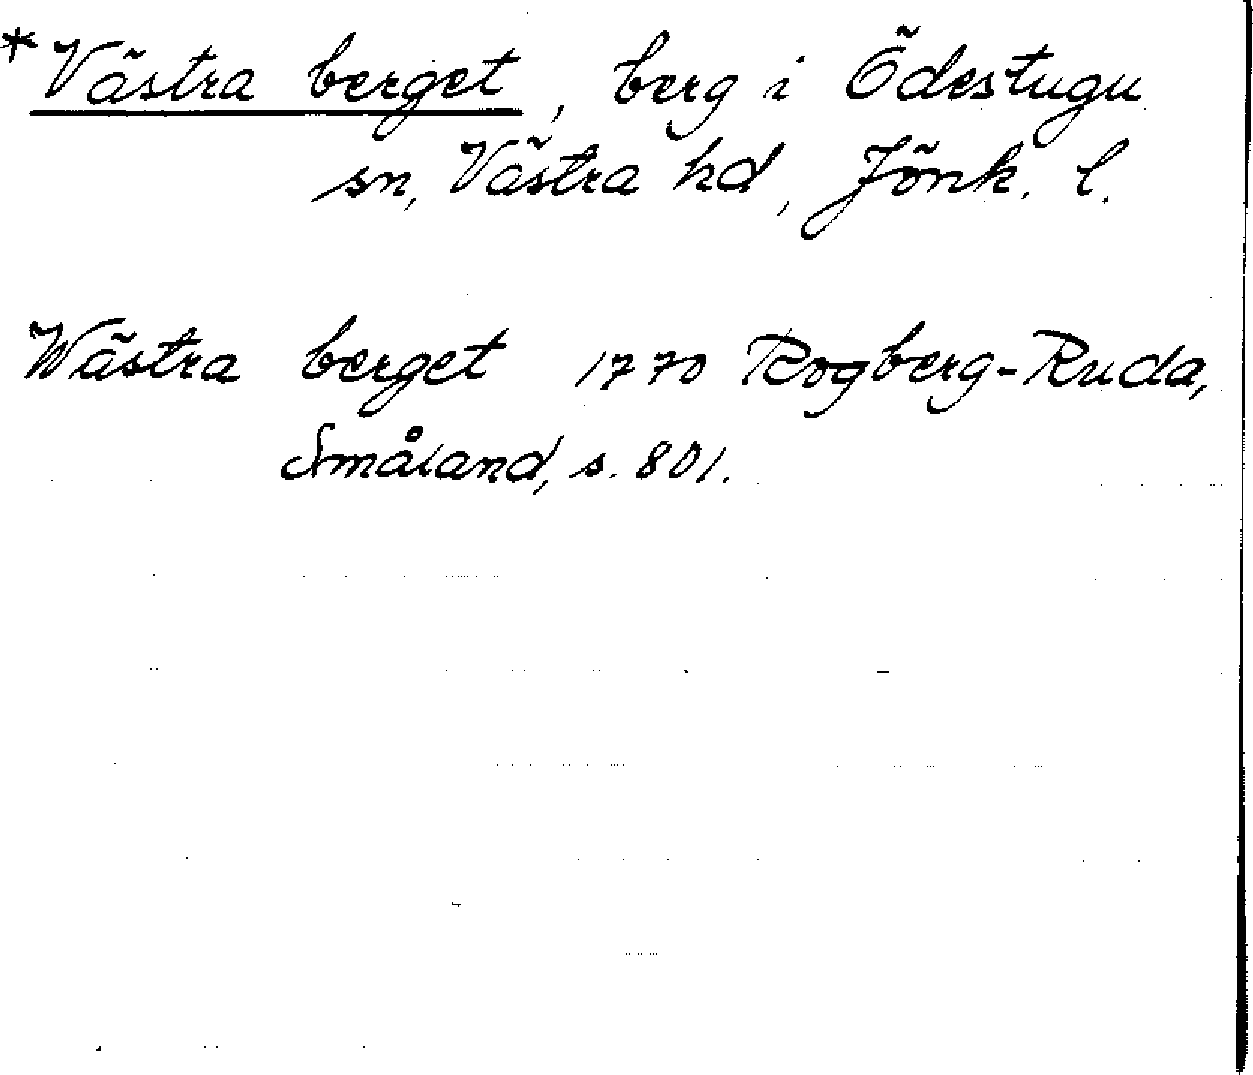 *Västra berget, berg i Ödestugu
sn, Västra hd, Jönk. l.
Wästra berget 1770 Rogberg-Ruda,
Småland, s. 801.